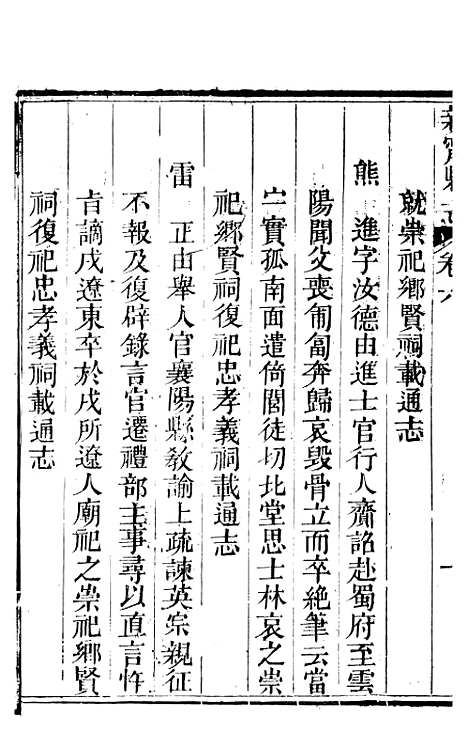 新寧縣志 卷六 一
就崇祀鄉賢祠載通志
熊 進字汝德由進士官行人齎詔赴蜀府至雲
陽聞父喪匍匐奔歸哀毀骨立而卒絶筆云當
室實孤南面遣倚閭徒切北堂思士林哀之崇
祀鄉賢祠復祀忠孝義祠載通志
雷 正由舉人官襄陽縣教諭上疏諫英宗親征
不報及復辟錄言官遷禮部主事尋以直言忤
旨謫戍遼東卒於戍所遼人廟祀之崇祀鄉賢
祠復祀忠孝義祠載通志